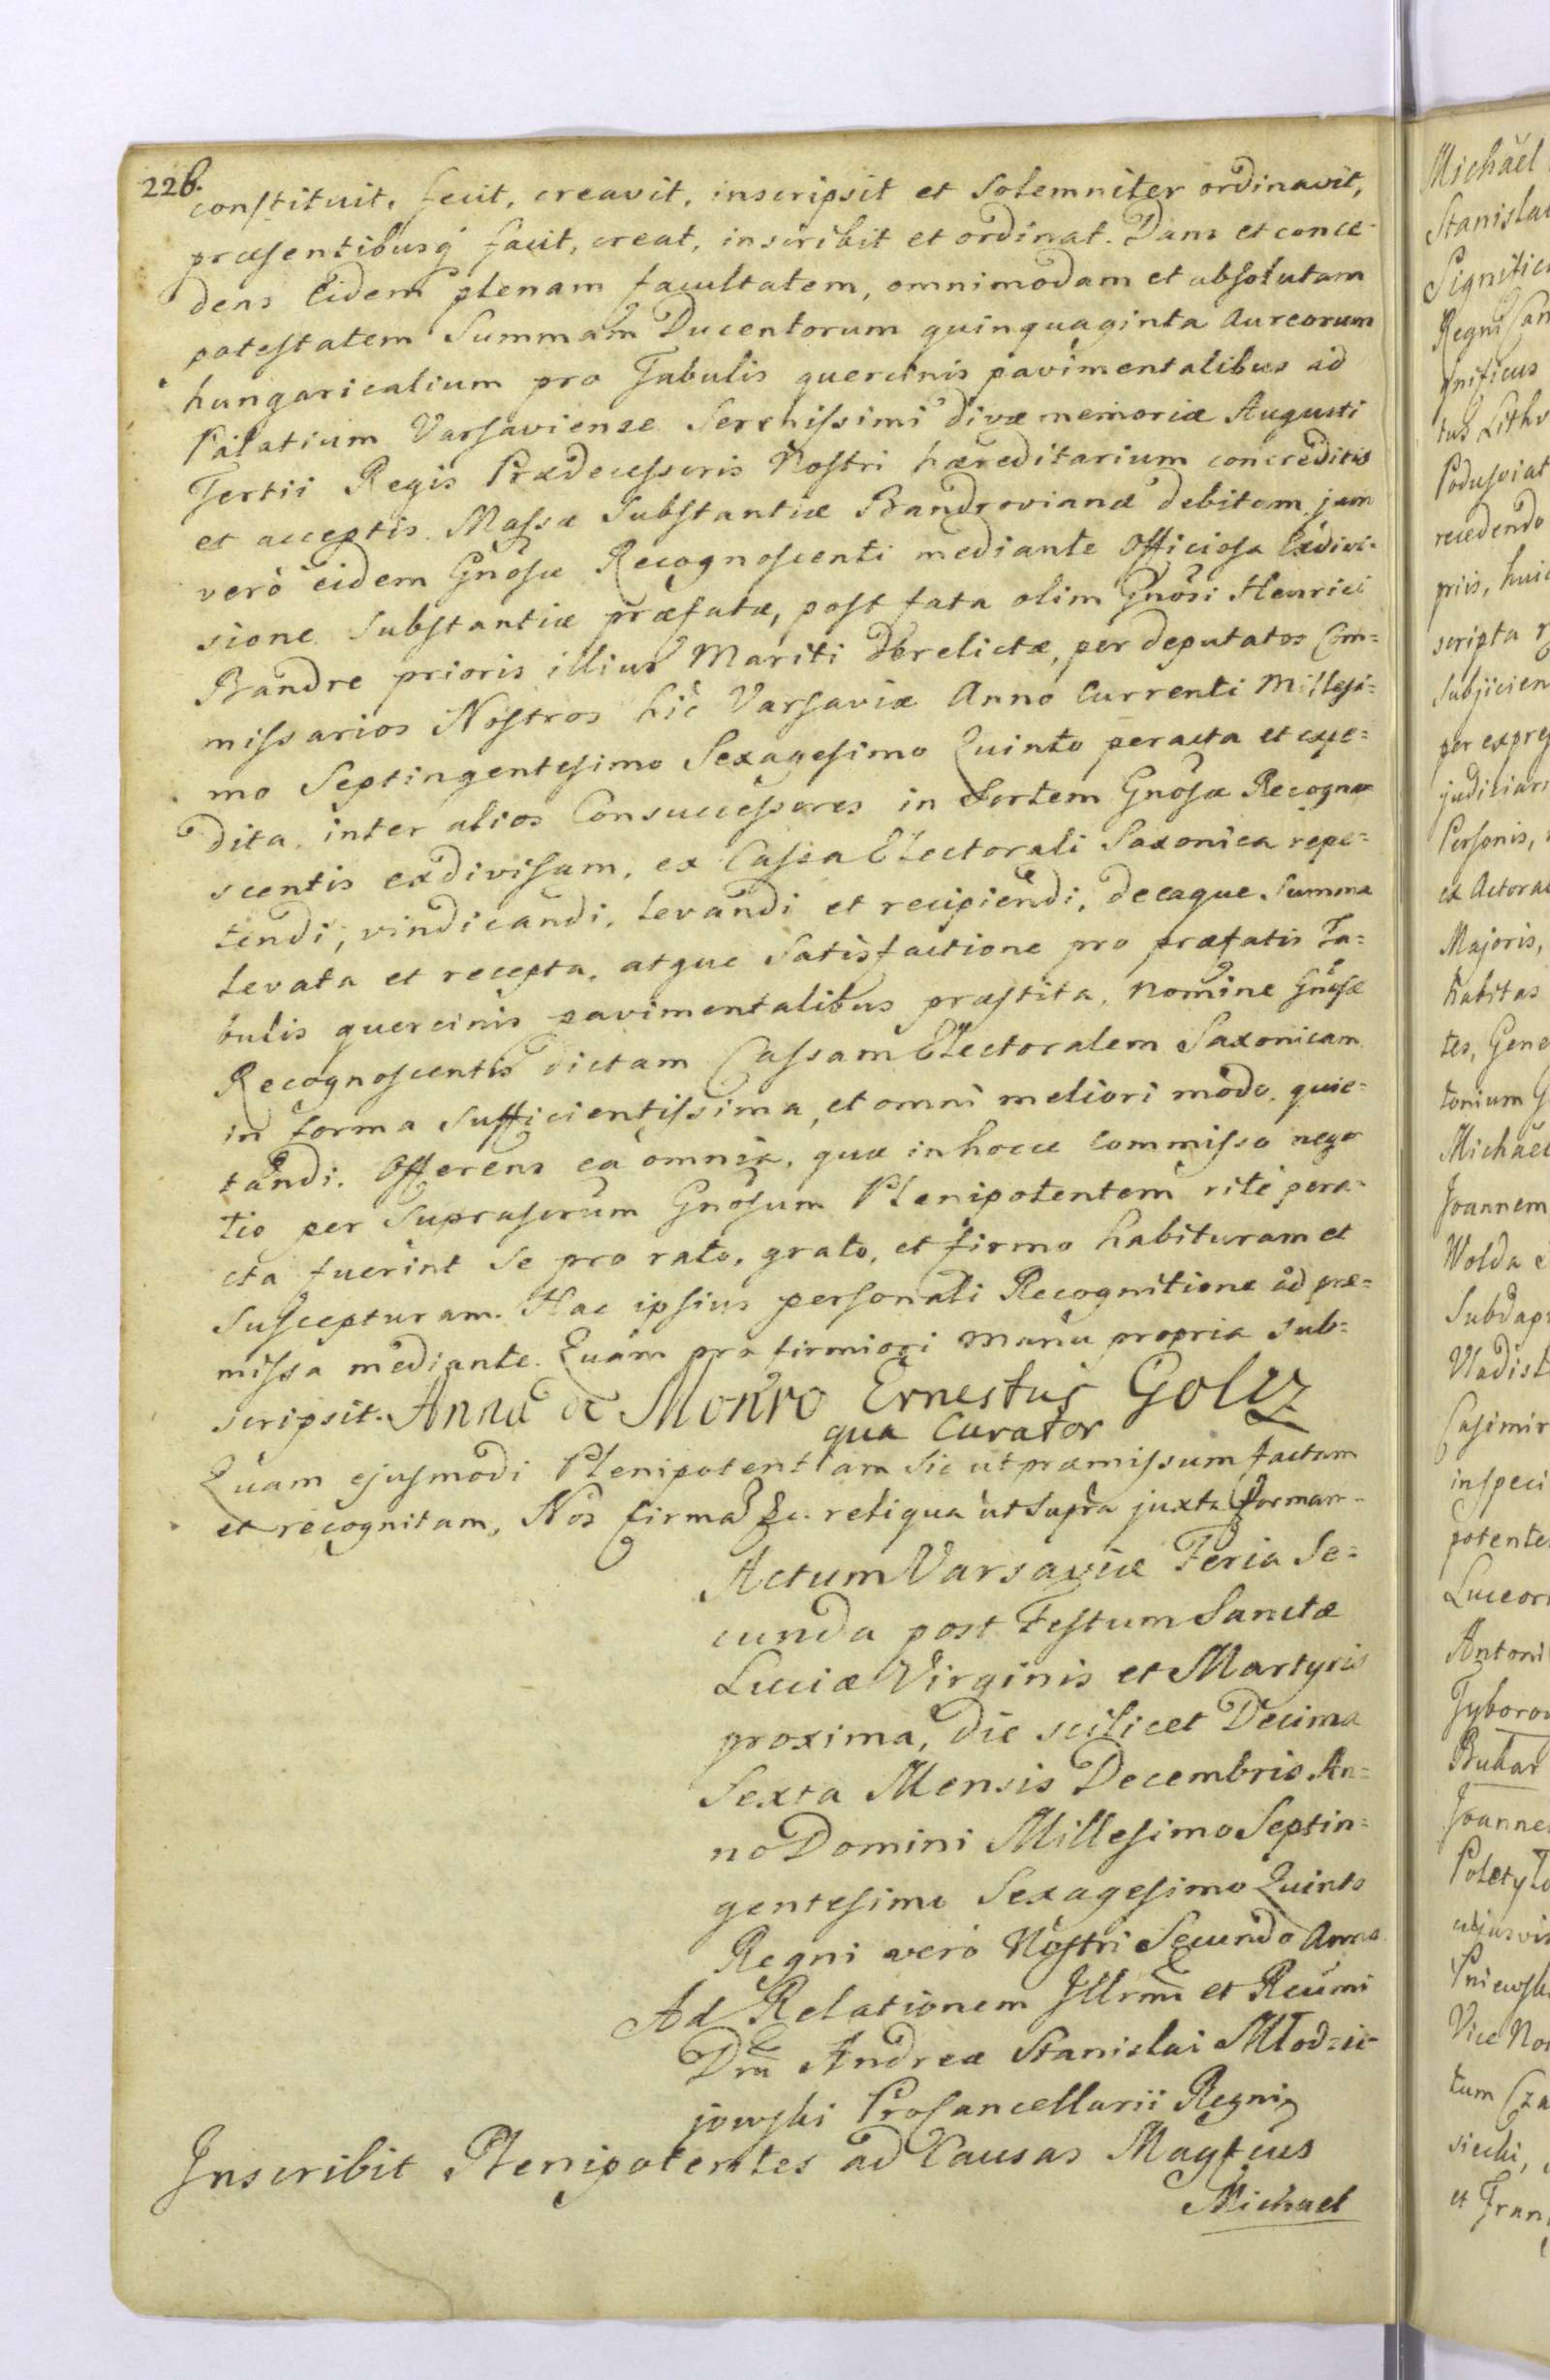 226.
constituit, fecit, creavit, inscripsit et solemniter ordinavit,
præsentibusq̃ facit, creat, inscribit et ordinat. Dans et conce-
dens Eidem plenam facultatem, omnimodam et absolutam
potestatem Summam Ducentorum quinquaginta Aureorum
hungaricalium pro Tabulis quercinis pavimentalibus ad
Palatium Varsaviense Serenissimi divæ memoriæ Augusti
Tertii Regis Prædecessoris Nostri hæreditarium concreditis
et acceptis Massæ Substantiæ Brandrovianæ debitam jam
verò eidem Gñosæ Recognoscenti mediante Officiosa Exdivi-
sione Substantiæ præfatæ, post fata olim Gñosi Henrici
Bandre prioris illius Mariti derelictæ, per deputatos Com=
missarios Nostros hic Varsaviæ Anno Currenti Millesi=
mo Septingentesimo Sexagesimo Quinto peracta et expe=
dita, inter alios Consuccessores in Sortem Gñosæ Recogno
scentis exdivisam, ex Cassa Electorali Saxonica repe=
tendi, vindicandi, levandi et recipiendi, deeaque Summa
levata et recepta, atque Satisfactione pro præfatis Ta=
bulis quercinis pavimentalibus præstita, nomine Gñosæ
Recognoscentis dictam Cassam Electoralem Saxonicam
in forma sufficientissima, et omni meliori modo, quie=
tandi. Offerens ea omnia, quæ in hocce Commisso nego
tio per Suprascrum Gñosum Plenipotentem ritè pera-
cta fuerint se pro rato, grato, et firmo habituram et
suscepturam. Hac ipsius personali Recognitione ad præ=
missa mediante. Quam pro firmiori manu propria sub=
scripsit. Anna de Monro Ernestus Goltz
qua Curator
Quam ejusmodi Plenipotentiam sic ut præmissum factam
et recognitam, Nos firma &c. reliqua ut supra juxta formam.
Actum Varsaviæ Feria Se=
cunda post Festum Sanctæ
Luciæ Virginis et Martyris
proxima, die scilicet Decima
Sexta Mensis Decembris An=
no Domini Millesimo Septin=
gentesimo Sexagesimo Quinto
Regni verò Nostri Secundo Anno
Ad Relationem Illrm̃i et Reum̃i
Dñi Andreæ Stanislai Młodzie-
jowski ProCancellarii Regni
Inscribit Plenipotentes ad Causas Magfcus
Michael
Michäel
Regni Can
gnificus
tus Lithv
recedendo
priis, huic
scripta
subjicien
Personis,
ex Actora
Majoris,
habitas
tes, Gene
tonium G
Michäel
Joannem
Wolda
Casimir
inspeci
potente
Antoni
Vice No
tum Cza
et Fran